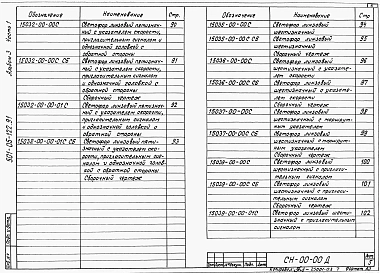 Альбом 3 Часть 1
501-05-122.91
Обозначение Наименование Стр.
15032-00-00С Светофор линзовый пятизнач- 90
ный с указателем скорости,
пригласительным сигналом и
однозначной головкой с
обратной стороны
15032-00-00С СБ Светофор линзовый пятизнач- 91
ный с указателем скорости,
пригласительным сигналом
и однозначной головкой с
обратной стороны
Сборочный чертеж
15032-00-00-01С Светофор линзовый пятизнач- 92
ный с указателем скорости,
пригласительным сигналом
и однозначной головкой с
обратной стороны
15032-00-00-01С СБ Светофор линзовый пяти- 93
значный с указателем ско-
рости, пригласительным сиг-
налом и однозначной голов-
кой с обратной стороны
Сборочный чертеж
Обозначение Наименование Стр.
15035-00-00С Светофор линзовый 94
шестизначный
15035-00-00С СБ Светофор линзовый 95
шестизначный
Сборочный чертеж
15036-00-00С Светофор линзовый 96
шестизначный с указате-
лем скорости
15036-00-00С СБ Светофор линзовый 97
шестизначный с указате-
лем скорости
Сборочный чертеж
15037-00-00С Светофор линзовый 98
шестизначный с маршрут-
ным указателем
15037-00-00С СБ Светофор линзовый 99
шестизначный с маршру-
тным указателем
Сборочный чертеж
15039-00-00С Светофор линзовый 100
шестизначный с пригла-
сительным сигналом
15039-00-00С СБ Светофор линзовый 101
шестизначный с пригласи-
тельным сигналом
Сборочный чертеж
15039-00-00-01С Светофор линзовый шестиз- 102
начный с пригласительным
сигналом
СН-00-00 Д
Лист
5